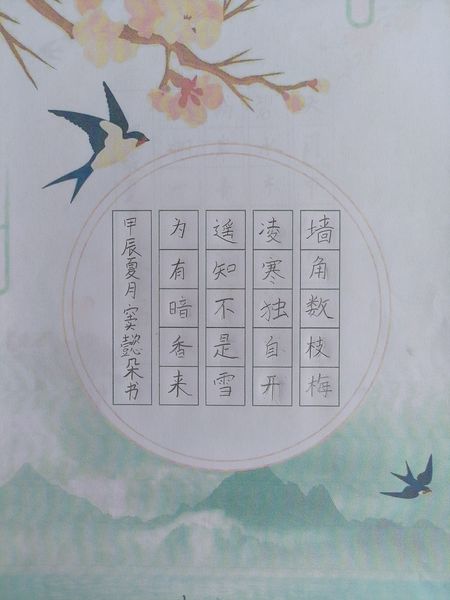 墙角数枝梅
凌寒独自开
遥知不是雪
为有暗香来
甲辰夏月窦懿朵书